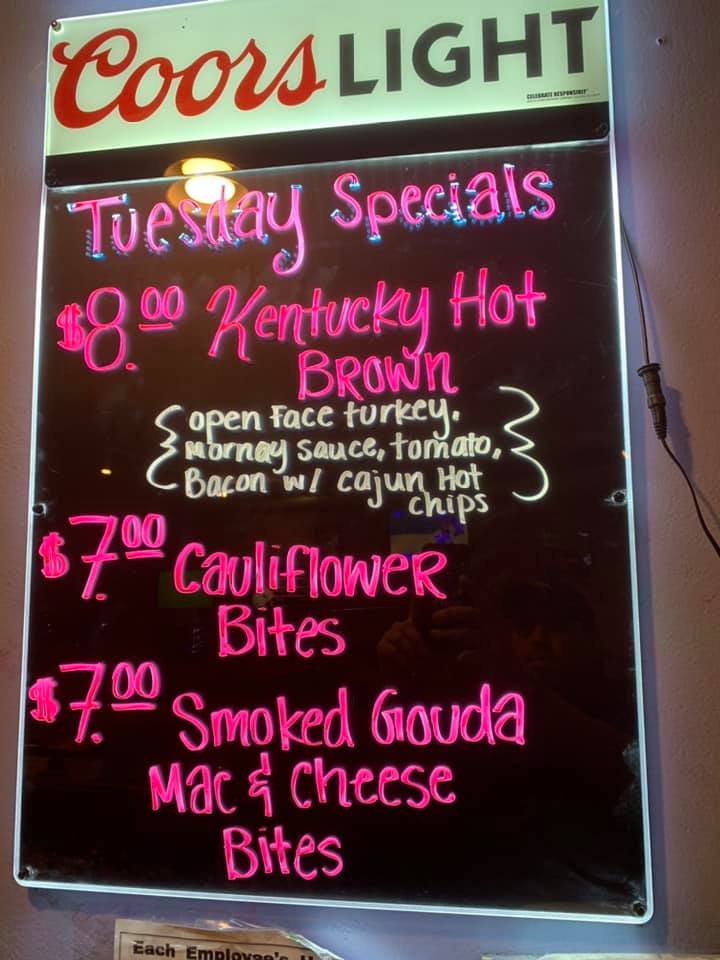 Coors LIGHT
CELEBRATE RESPONSIBLY
Tuesday Specials
$8.00 Kentucky Hot
Brown
{open face turkey,
mornay sauce, tomato,
Bacon w/ cajun Hot
chips}
$7.00 Cauliflower
Bites
$7.00 Smoked Gouda
Mac & Cheese
Bites
Each Employee's